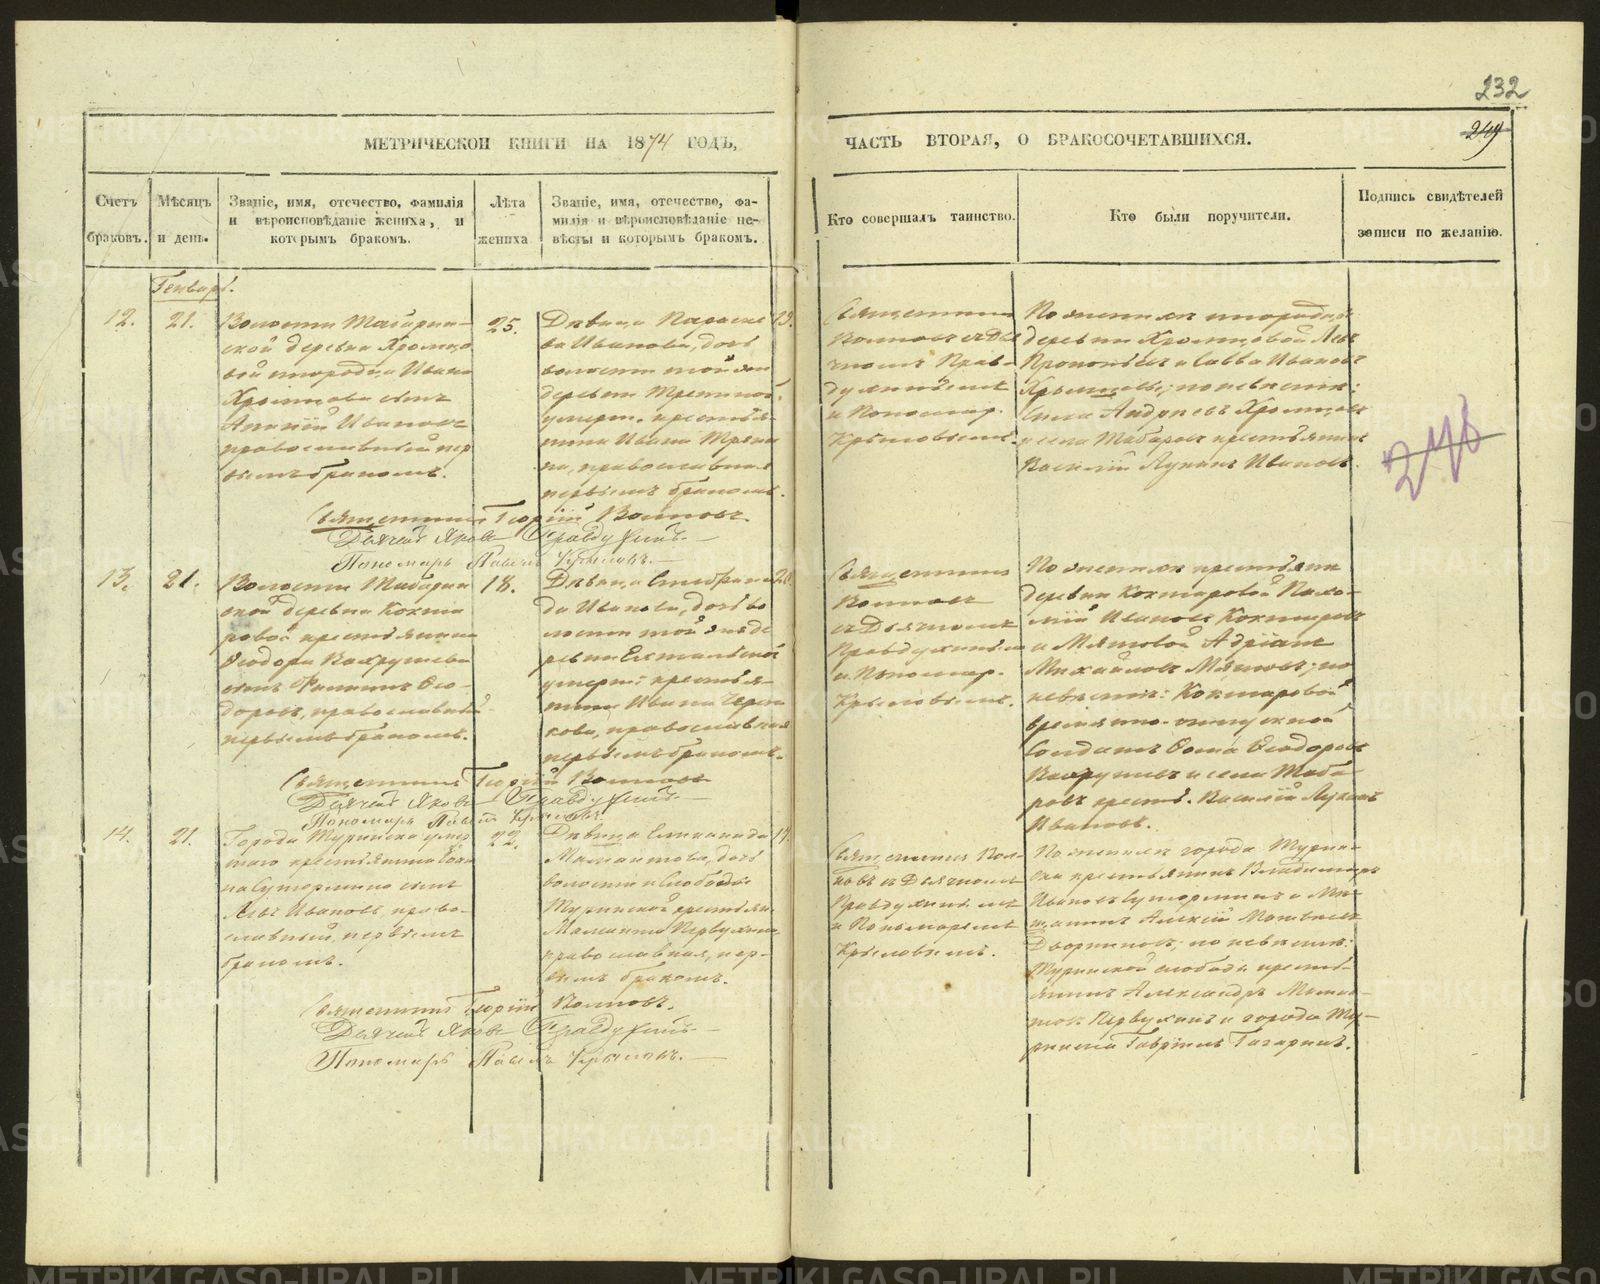 232
249
МЕТРИЧЕСКОЙ КНИГИ НА 1874 ГОДЪ,
ЧАСТЬ ВТОРАЯ, О БРАКОСОЧЕТАВШИХСЯ.
Счетъ браковъ.
Мѣсяцъ и день.
Званіе, имя, отечество, фамилія
и вѣроисповѣданіе жениха, и
которымъ бракомъ.
Лѣта жениха
Званіе, имя, отечество, фа-
милія и вѣроисповѣданіе не-
вѣсты и которымъ бракомъ.
Кто совершалъ таинство.
Кто были поручители.
Подпись свидѣтелей
записи по желанію.
Генварь.
12.
21.
Волости Табарин-
ской деревни Хромцо
вой инородца Ивана
Хромцова сынъ
Ананій Ивановъ
православный пер
вымъ бракомъ.
25.
Дѣвица Параске
ва Иванова, дочь
волости той же
деревни
умерш. крестья-
нина Ивана
на, православная
первымъ бракомъ.
19.
Священникъ
Волковъ съ Дья
чкомъ Прав-
духинымъ
и Пономар.
Крыловымъ.
По женихѣ инородцы
деревни Хромцовой Левъ
Прокопьевъ и Савва Ивановъ
Хромцовы; по невѣстѣ:
Андреевъ Хромцовъ
и села Табаровъ крестьянинъ
Василій Лукинъ Ивановъ.
246
Священникъ Георгій Волковъ.
Дьячекъ Яковъ Правдухинъ.
Пономарь Павелъ Крыловъ.
13.
21.
Волости Табарин
ской деревни Кокша
ровой крестьянина
Ѳеодора Вахрушева
сынъ Филиппъ Ѳео-
доровъ, православный
первымъ бракомъ.
18.
Дѣвица
да Иванова, дочь во
лости той же де
ревни
умерш. крестья-
нина Ивана
кова, православная
первымъ бракомъ.
Священникъ
Волковъ
съ Дьячкомъ
Правдухинымъ
и Пономар.
Крыловымъ.
По женихѣ крестьяне
деревни Кокшаровой
Ивановъ Кокшаровъ
и Мятевой Адріанъ
Михайловъ; по
невѣстѣ: Кокшаровой
временно-отпускной
Солдатъ Ѳома Ѳеодоровъ
Вахрушевъ и села Таба-
ровъ крестьян. Василій Лукинъ
Ивановъ.
Священникъ Георгій Волковъ
Дьячекъ Яковъ Правдухинъ.
Пономарь Павелъ Крыловъ
14.
21.
Города Туринска умер
шаго крестьянина Іоан
на Сутормина сынъ
Левъ Ивановъ, право-
славный, первымъ
бракомъ.
22.
Дѣвица
Мамантова, дочь
волости и Слободы
Туринской крестьян.
Маманта Первухина
православная, пер-
вымъ бракомъ.
19.
Священникъ Вол-
ковъ съ Дьячкомъ
Правдухинымъ
и Пономаремъ
Крыловымъ.
По женихѣ города Турин-
ска крестьянинъ Владимиръ
Ивановъ Суторминъ и Мѣ-
щанинъ Алексій
Дворниковъ; по невѣстѣ:
Туринской слободы кресть-
янинъ Александръ Маман-
товъ Первухинъ и города Ту-
ринска Гавріилъ Гагаринъ.
Священникъ Георгій Волковъ.
Дьячекъ Яковъ Правдухинъ.
Пономарь Павелъ Крыловъ.
METRIKI.GASO-URAL.RU